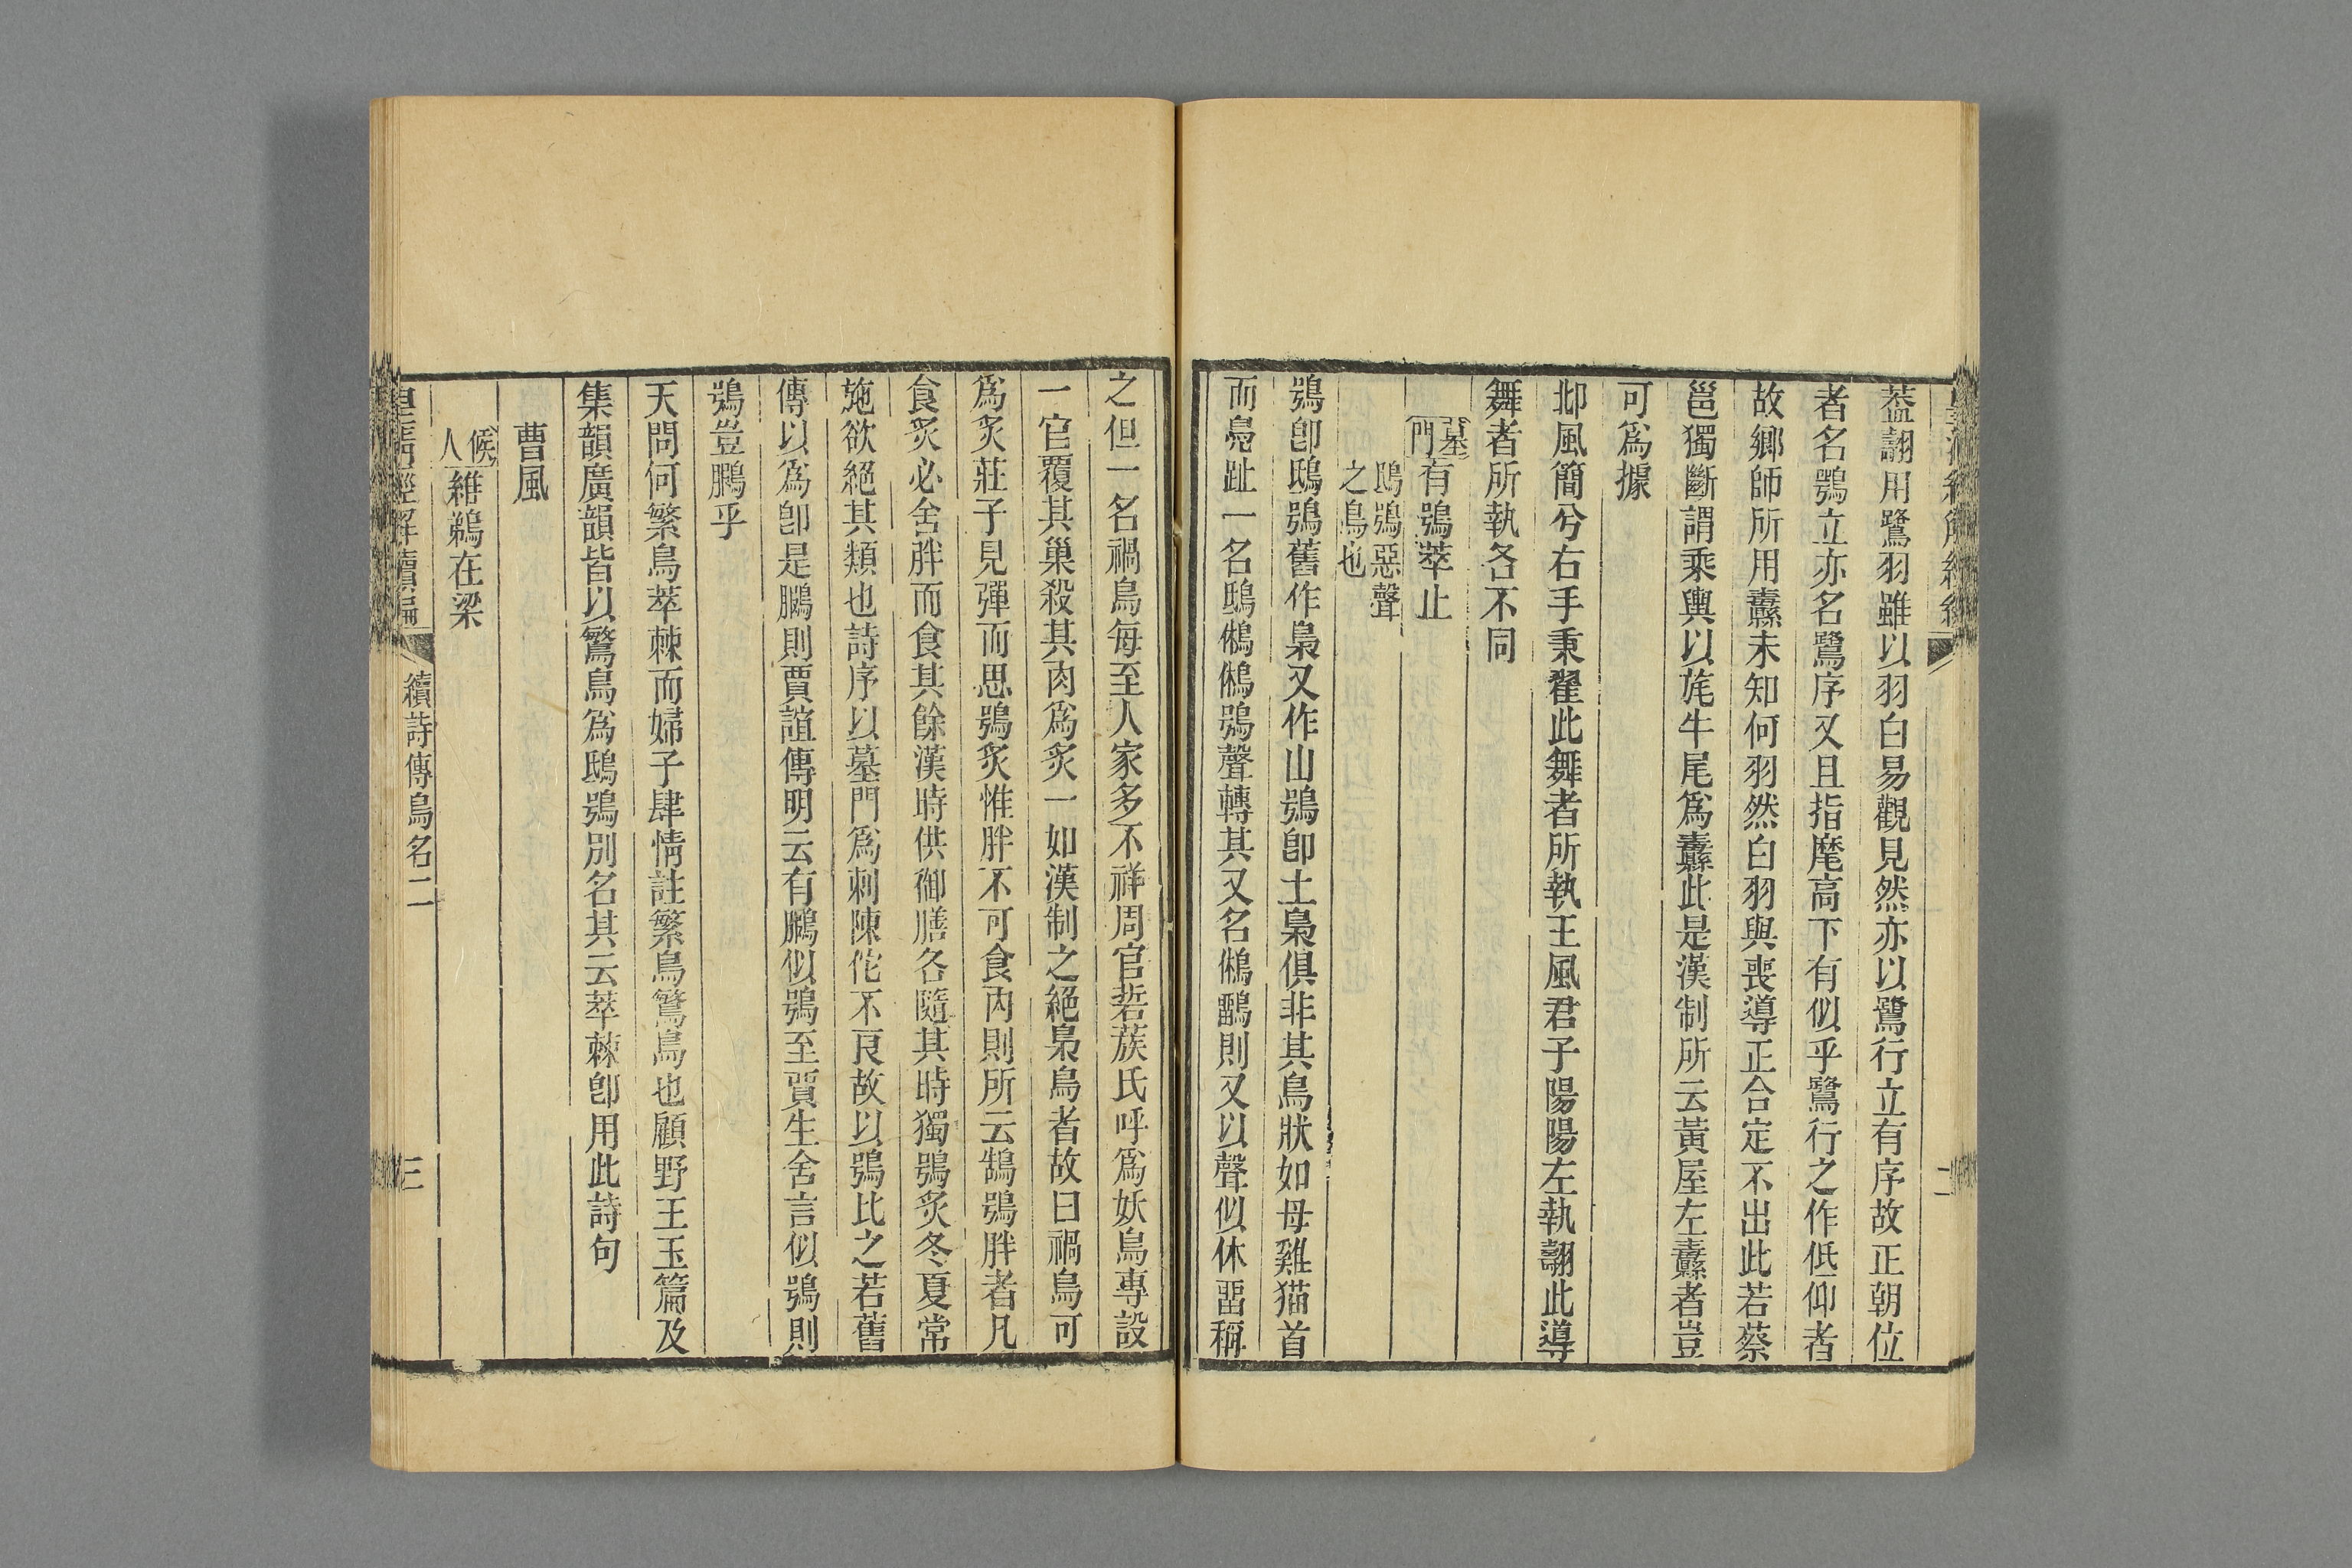 蓋翿用鷺羽雖以羽白易觀見然亦以鷺行立有序故正朝位
者名鶚立亦名鷺序又且指麾高下有似乎鷺行之作低仰者
故鄉師所用纛未知何羽然白羽與喪導正合定不出此若蔡
邕獨斷謂乘輿以旄牛尾爲纛此是漢制所云黃屋左纛者豈
可爲據
邶風簡兮右手秉翟此舞者所執王風君子陽陽左執翿此導
舞者所執各不同
墓門有鴞萃止
鴟鴞惡聲
之鳥也
鴞卽鴟鴞舊作梟又作山鴞卽土梟俱非其鳥狀如母雞猫首
而鳧趾一名鴟鵂鵂鴞聲轉其又名鵂鶹則又以聲似休畱稱
之但一名禍鳥每至人家多不祥周官硩蔟氏呼爲妖鳥專設
一官覆其巢殺其肉爲炙一如漢制之絕梟鳥者故曰禍鳥可
爲炙莊子見彈而思鴞炙惟胖不可食內則所云鵠鴞胖者凡
食炙必舍胖而食其餘漢時供御膳各隨其時獨鴞炙冬夏常
施欲絕其類也詩序以墓門爲刺陳佗不良故以鴞比之若舊
傳以爲卽是鵩則賈誼傳明云有鵩似鴞至賈生舍言似鴞則
鴞豈鵩乎
天問何繁鳥萃棘而婦子肆情註繁鳥鷩鳥也顧野王玉篇及
集韻廣韻皆以鷩鳥爲鴟鴞別名其云萃棘卽用此詩句
曹風
候人維鵜在梁
皇淸經解續編
續詩傳鳥名二
三